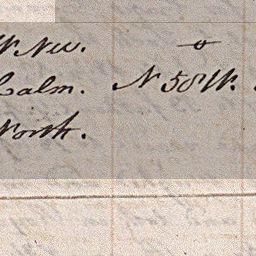 W NW.
Calm. N 58 W.
North.